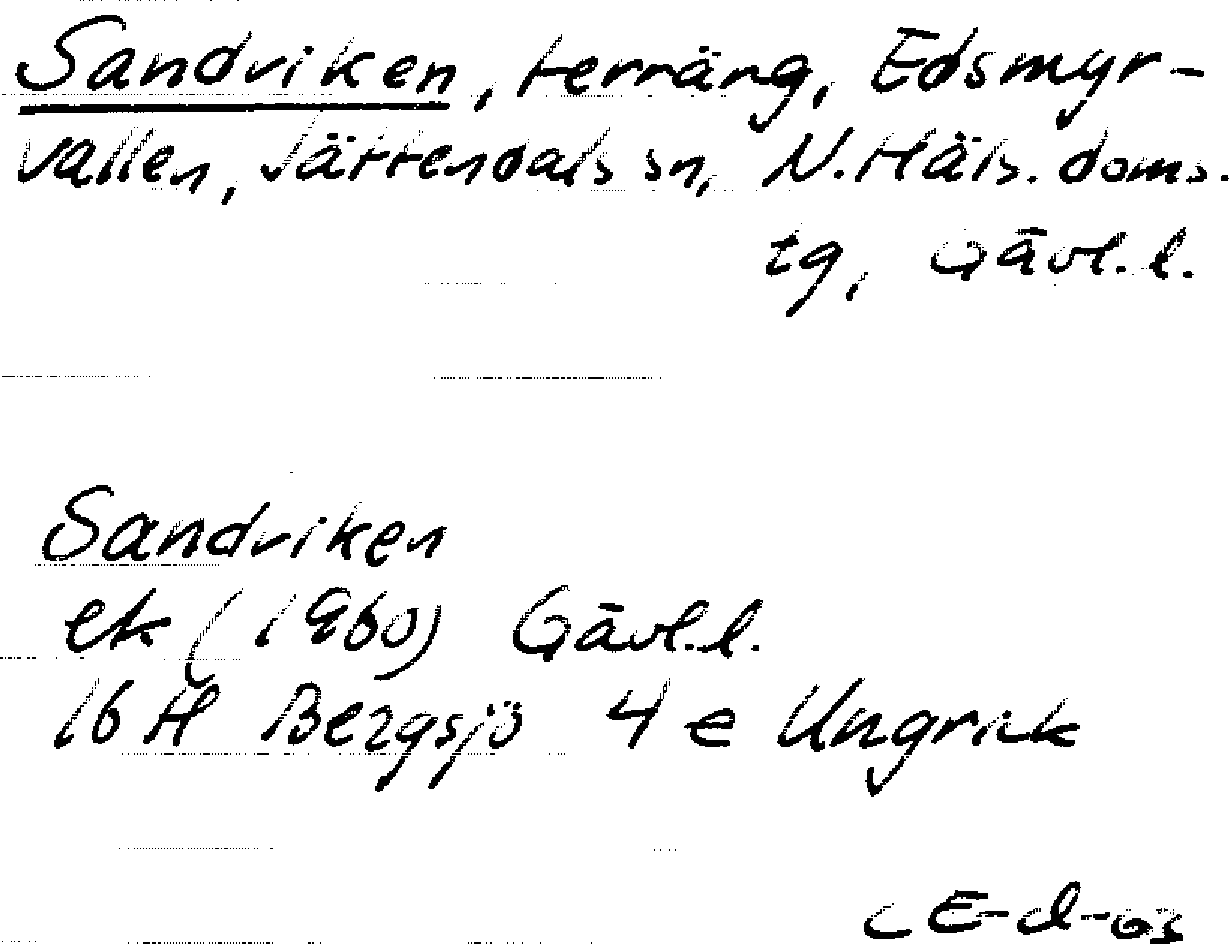 Sandviken, terräng, Edsmyr-
vallen, Jättendals sn, N. Häls. doms.
tg, Gävl. l.
Sandviken
ek (1960) Gävl. l.
16 H Bergsjö 4 e Ungrick
CE-d-63